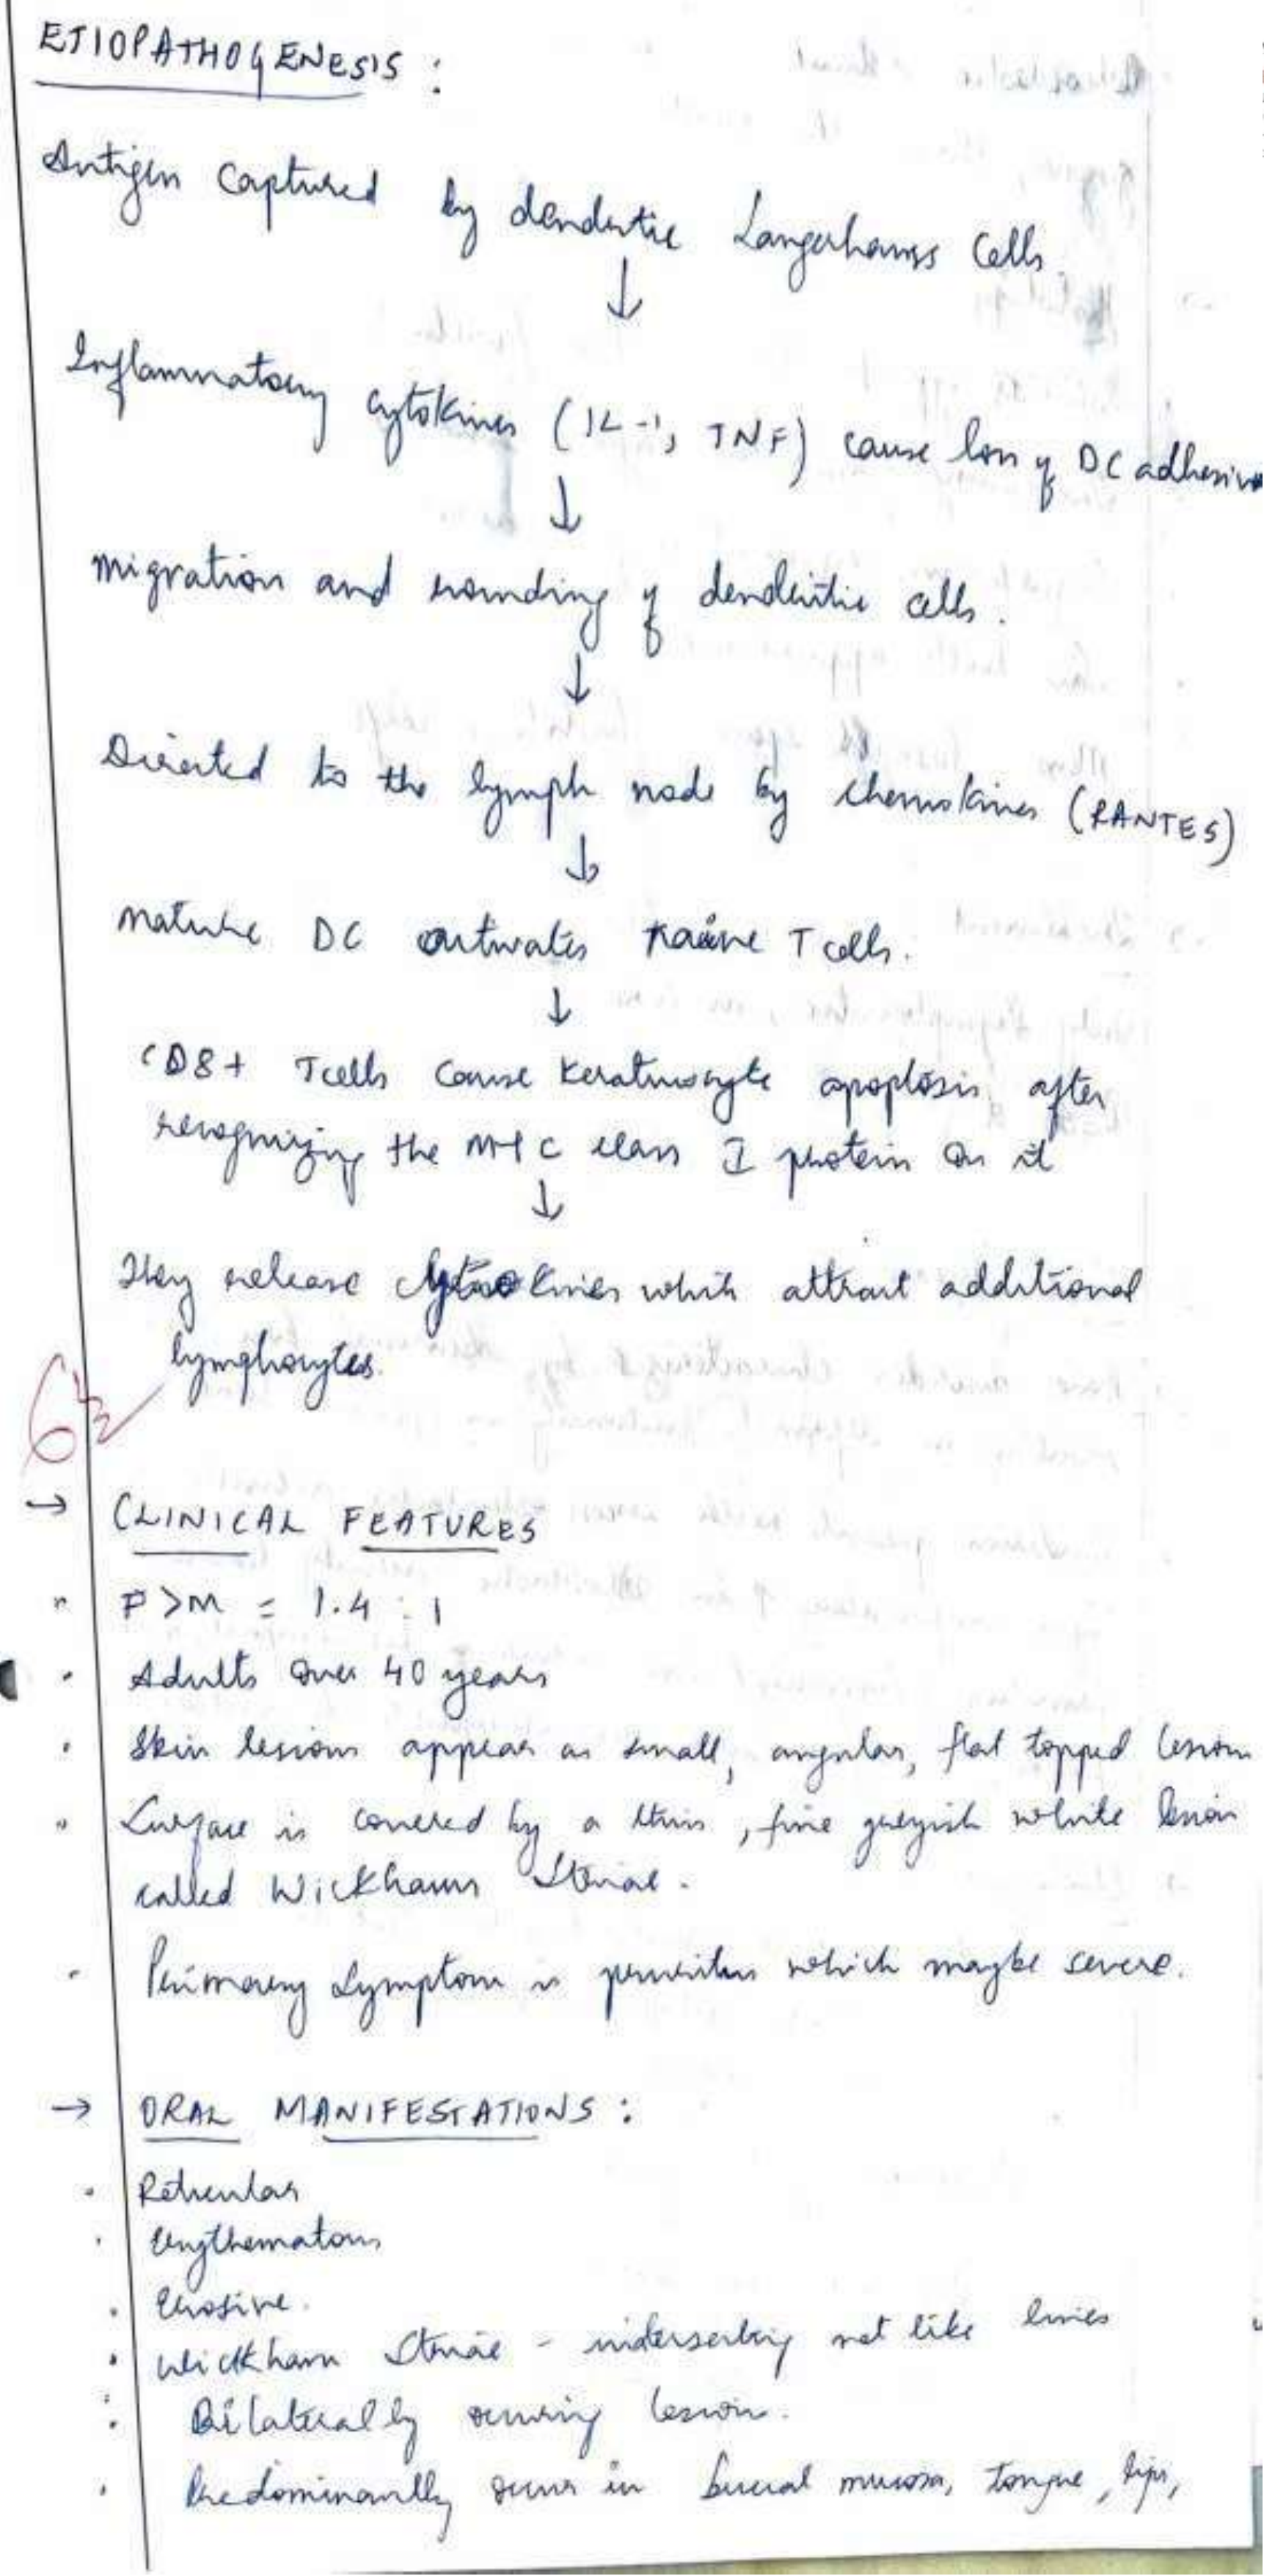 ETIOPATHOGENESIS :
Antigen captured by dendritic Langerhanss cells.
↓
Inflammatory cytokines (IL-1, TNF) cause loss of DC adhesion
↓
Migration and rounding of dendritic cells.
↓
Directed to the lymph node by chemokines (RANTES)
↓
Mature DC activates naive T cells.
↓
CD8+ Tcells cause keratinocyte apoptosis after
recognizing the MHC class I protein on it
↓
They release cytokines which attract additional
lymphocytes.
6½
→ CLINICAL FEATURES
• F>M = 1.4 : 1
• Adults over 40 years
• Skin lesions appear as small, angular, flat topped lesion
• Surface is covered by a thin, fine greyish white lesion
called Wickhams Striae.
• Primary symptom is pruritus which maybe severe.
→ ORAL MANIFESTATIONS :
• Reticular
• Erythematous
• Erosive.
• Wickham Striae - interseting net like lines
• Bilaterally occuring lesion.
• Predominantly occurs in buccal mucosa, tongue, lips,